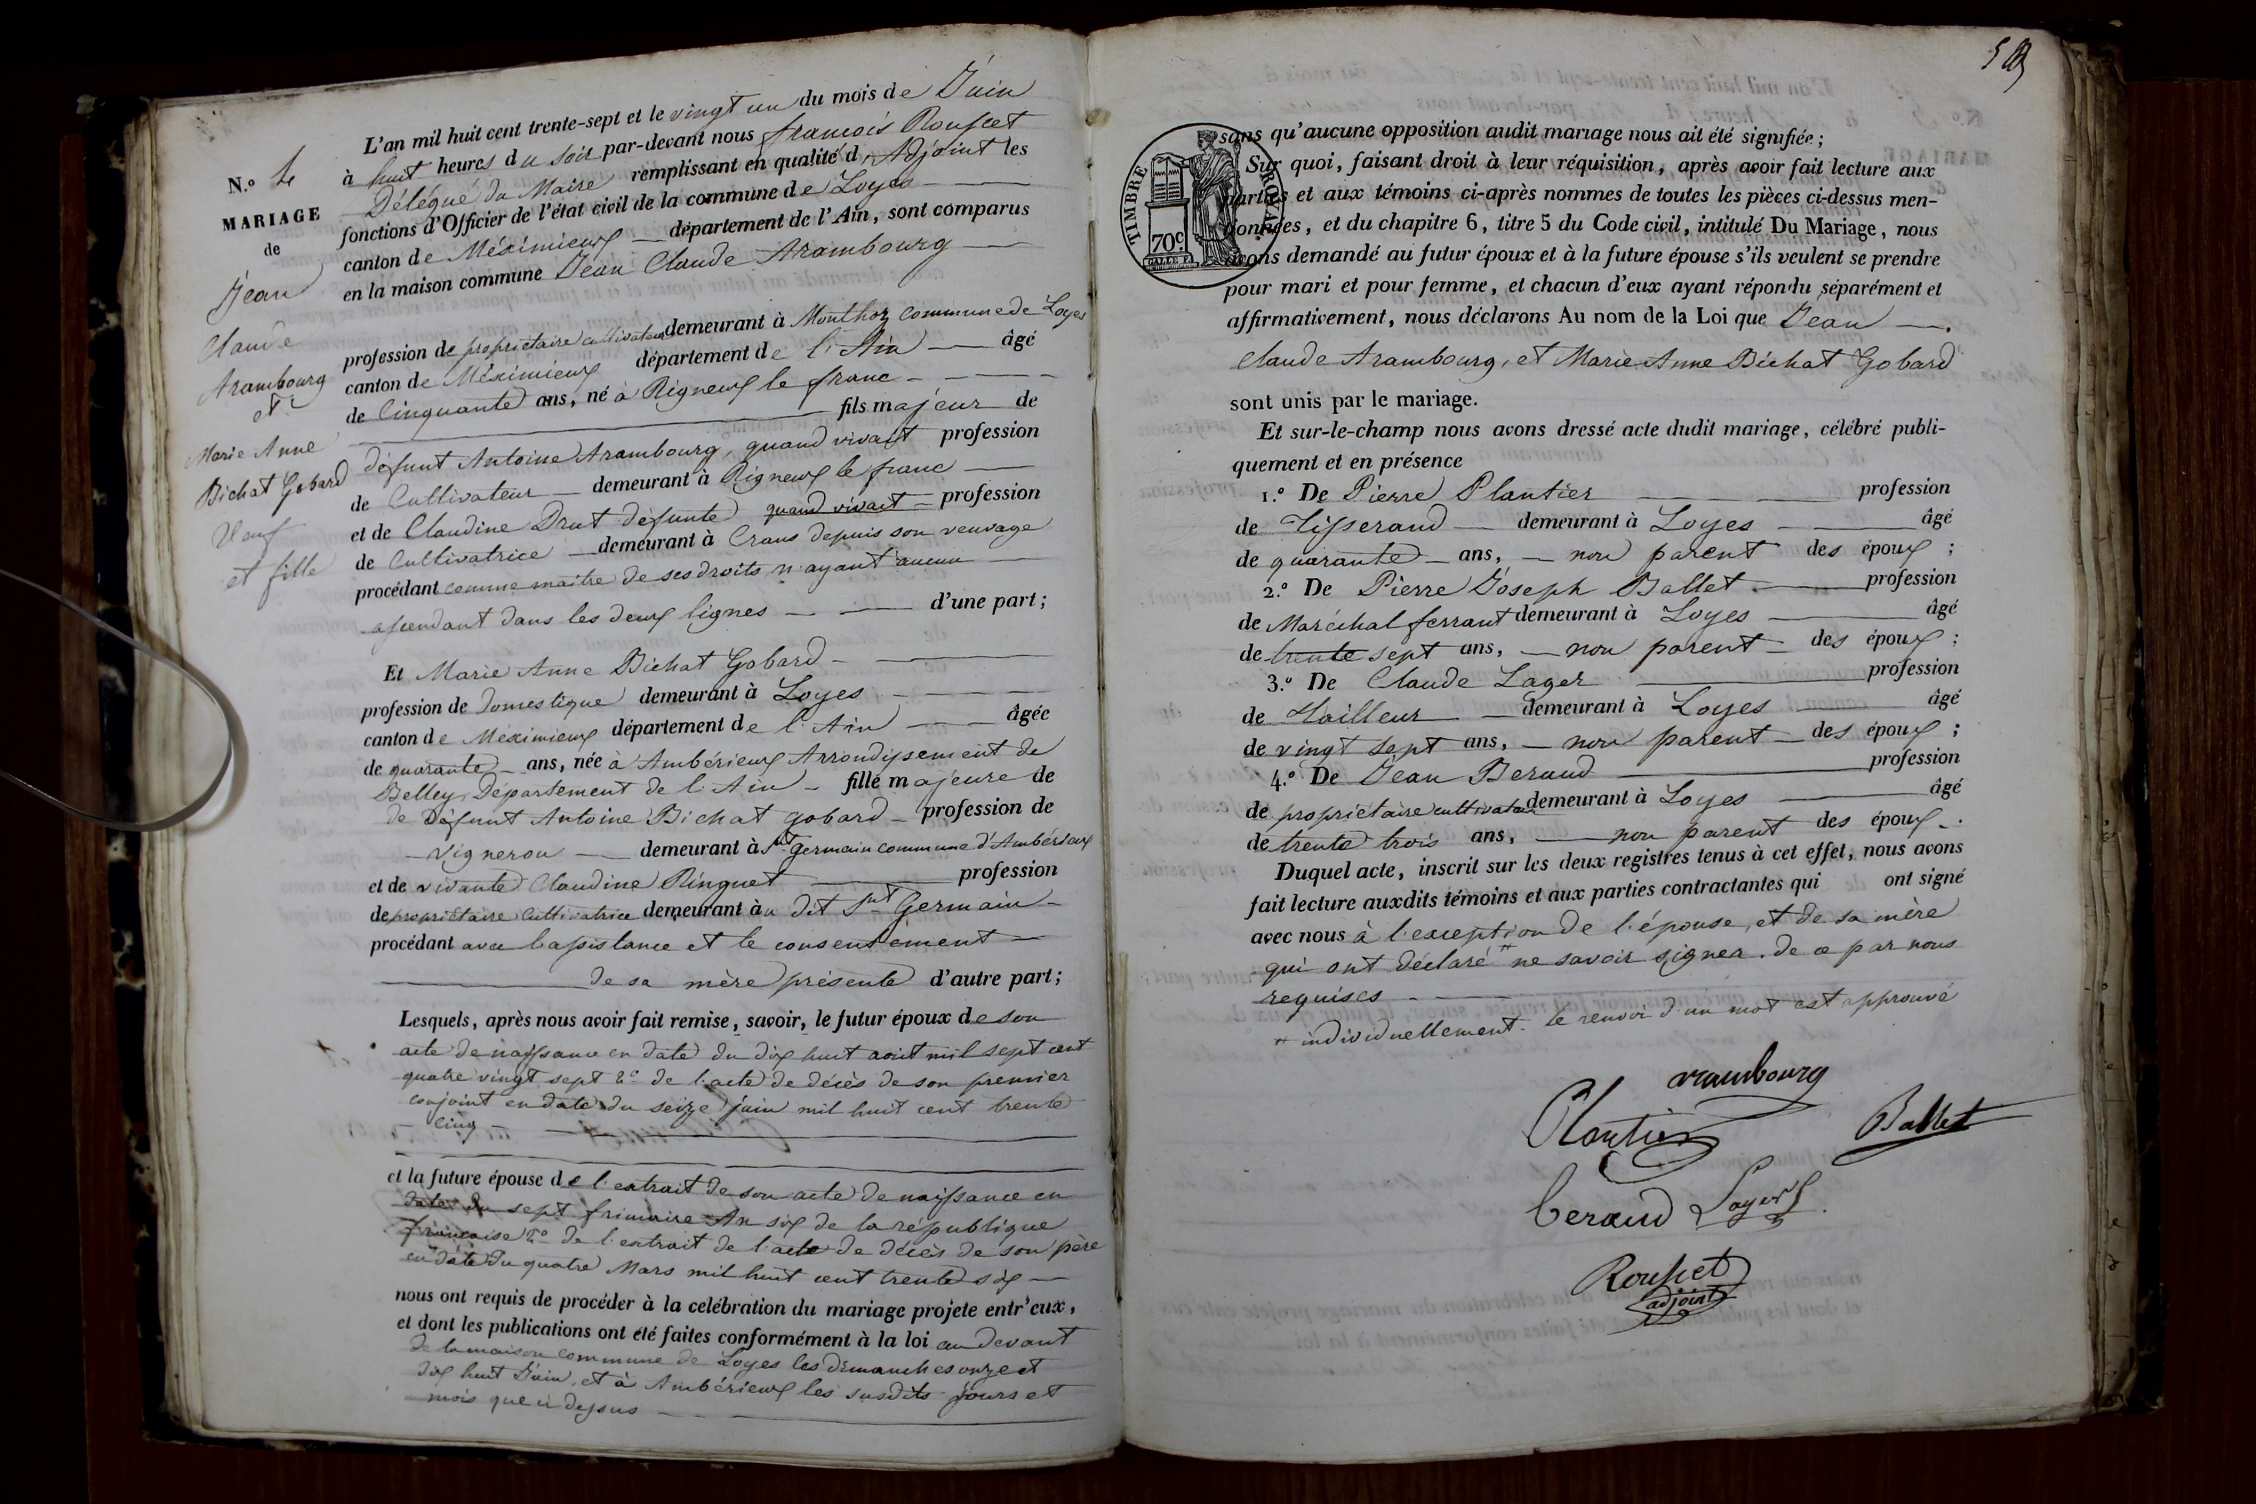 N.º 4
MARIAGE
de
Jean
Claude
Arambourg
et
Marie Anne
Bichat Gobard
Veuf
et fille
L'an mil huit cent trente-sept et le vingt un du mois de Juin
à huit heures du soir par-devant nous françois Rousset
Délégué du Maire remplissant en qualité d'Adjoint les
fonctions d'Officier de l'état civil de la commune de Loyes
canton de Méximieux département de l'Ain, sont comparus
en la maison commune Jean Claude Arambourg
profession de propriétaire cultivateur demeurant à Monthoz commune de Loyes
canton de Méximieux département de l'Ain âgé
de Cinquante ans, né à Rigneux le franc
fils majeur de
défunt Antoine Arambourg, quand vivait profession
de Cultivateur demeurant à Rigneux le franc
et de Claudine Drut défunte quand vivait profession
de Cultivatrice demeurant à Crans depuis son veuvage
procédant comme maitre de ses droits n'ayant aucun
ascendant dans les deux lignes d'une part;
Et Marie Anne Bichat Gobard
profession de Domestique demeurant à Loyes
canton de Meximieux département de l'Ain âgée
de quarante ans, née à Ambérieux Arrondissement de
Belley, Département de l'Ain fille majeure de
de Défunt Antoine Bichat gobard profession de
Vigneron demeurant à St germain commune d'Ambérieux
et de vivante Claudine Ringuet profession
de propriétaire Cultivatrice demeurant au dit Snt Germain
procédant avec l'assistance et le consentement
de sa mère présente d'autre part;
Lesquels, après nous avoir fait remise, savoir, le futur époux de son
acte de naissance en date du dix huit aout mil sept cent
quatre vingt sept 2º de l'acte de décès de son premier
conjoint en date du seize juin mil huit cent trente
cinq
et la future épouse de l'extrait de son acte de naissance en
date du sept frimaire An six de la république
française 2º de l'extrait de l'acte de décès de son père
en date du quatre Mars mil huit cent trente six
nous ont requis de procéder à la celébration du mariage projete entr'eux,
et dont les publications ont été faites conformément à la loi au devant
de la maison commune de Loyes les dimanches onze et
dix huit Juin, et à Ambérieux les susdits jours et
mois que ci dessus
TIMBRE ROYAL
70c.
sans qu'aucune opposition audit mariage nous ait été signifiée;
Sur quoi, faisant droit à leur réquisition, après avoir fait lecture aux
parties et aux témoins ci-après nommes de toutes les pièces ci-dessus men-
tionnées, et du chapitre 6, titre 5 du Code civil, intitulé Du Mariage, nous
avons demandé au futur époux et à la future épouse s'ils veulent se prendre
pour mari et pour femme, et chacun d'eux ayant répondu séparément et
affirmativement, nous déclarons Au nom de la Loi que Jean
Claude Arambourg, et Marie Anne Bichat Gobard
sont unis par le mariage.
Et sur-le-champ nous avons dressé acte dudit mariage, célébré publi-
quement et en présence
1.º De Pierre Plantier profession
de Tisserand demeurant à Loyes âgé
de quarante ans, non parent des époux;
2.º De Pierre Joseph Ballet profession
de Maréchal ferrant demeurant à Loyes âgé
de trente sept ans, non parent des époux;
3.º De Claude Lager profession
de Tailleur demeurant à Loyes âgé
de vingt sept ans, non parent des époux;
4.º De Jean Beraud profession
de propriétaire cultivateur demeurant à Loyes âgé
de trente trois ans, non parent des époux.
Duquel acte, inscrit sur les deux registres tenus à cet effet, nous avons
fait lecture auxdits témoins et aux parties contractantes qui ont signé
avec nous à l'exception de l'épouse, et de sa mère
qui ont déclaré ne savoir signer. de ce par nous
requises
individuellement. le renvoi d'un mot est approuvé
arambourg
Plantier
Ballet
beraud
Lager
Rousset
adjoint